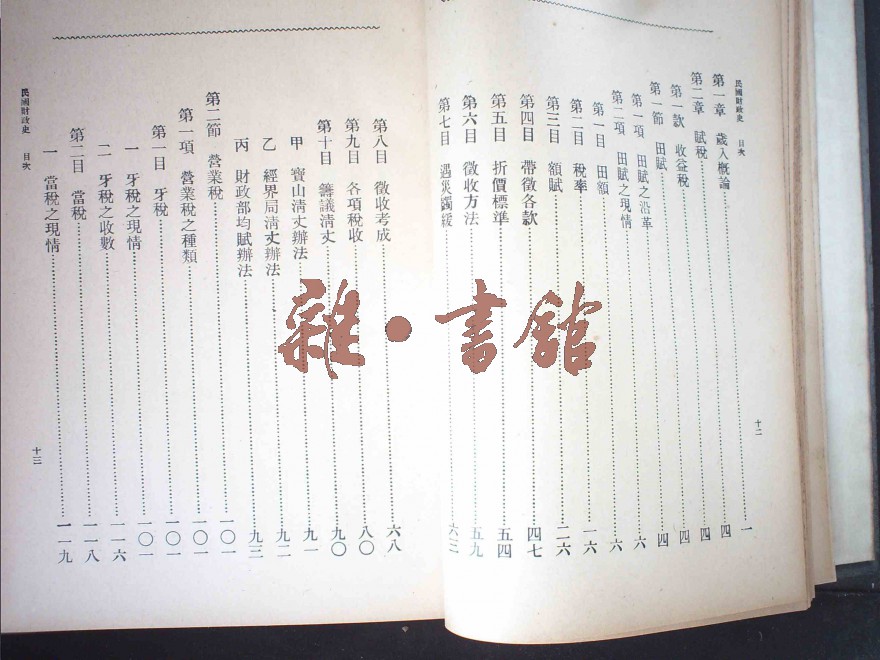 民國財政史 目次
第一章 歲入概論……一
第二章 賦稅……四
第一款 收益稅……四
第一節 田賦……四
第一項 田賦之沿革……四
第二項 田賦之現情……六
第一目 田額……六
第二目 稅率……一六
第三目 額賦……二六
第四目 帶徵各款……四七
第五目 折價標準……五四
第六目 徵收方法……五九
第七目 遇災蠲緩……六三
十二
第八目 徵收考成……六八
第九目 各項稅收……八〇
第十目 籌議清丈……九〇
甲 寶山清丈辦法……九一
乙 經界局清丈辦法……九二
丙 財政部均賦辦法……九三
第二節 營業稅……一〇一
第一項 營業稅之種類……一〇一
第一目 牙稅……一〇一
一 牙稅之現情……一〇一
二 牙稅之收數……一一六
第二目 當稅……一一八
一 當稅之現情……一一九
民國財政史 目次
十三
雜·書館